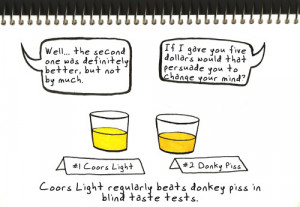 Well... the second
one was definitely
better, but not
by much.
If I gave you five
dollars would that
persuade you to
change your mind?
#1 Coors Light
#2 Donky Piss
Coors Light regularly beats donkey piss in
blind taste tests.